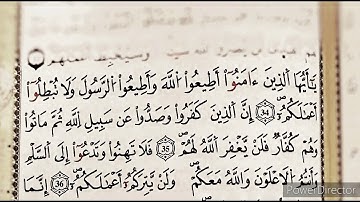 وسيحبط
يَٰٓأَيُّهَا اَ۬لذِينَ ءَامَنُوٓاْ أَطِيعُواْ اُ۬للَّهَ وَأَطِيعُواْ اُ۬لرَّسُولَ وَلَا تُبْطِلُوٓاْ
أَعْمَٰلَكُمُۥٓ 34 إِنَّ اَ۬لذِينَ كَفَرُواْ وَصَدُّواْ عَن سَبِيلِ اِ۬للَّهِ ثُمَّ مَاتُواْ
وَهُمْ كُفَّارٌ فَلَنْ يَّغْفِرَ اَ۬للَّهُ لَهُمُۥٓ 35 فَلَا تَهِنُواْ وَتَدْعُوٓاْ إِلَى اَ۬لسَّلْمِ
وَأَنتُمُ اُ۬لْأَعْلَوْنَ وَاللَّهُ مَعَكُمْ وَلَنْ يَّتِرَكُمُۥٓ أَعْمَٰلَكُمُۥٓ 36 إِنَّمَا
PowerDirector